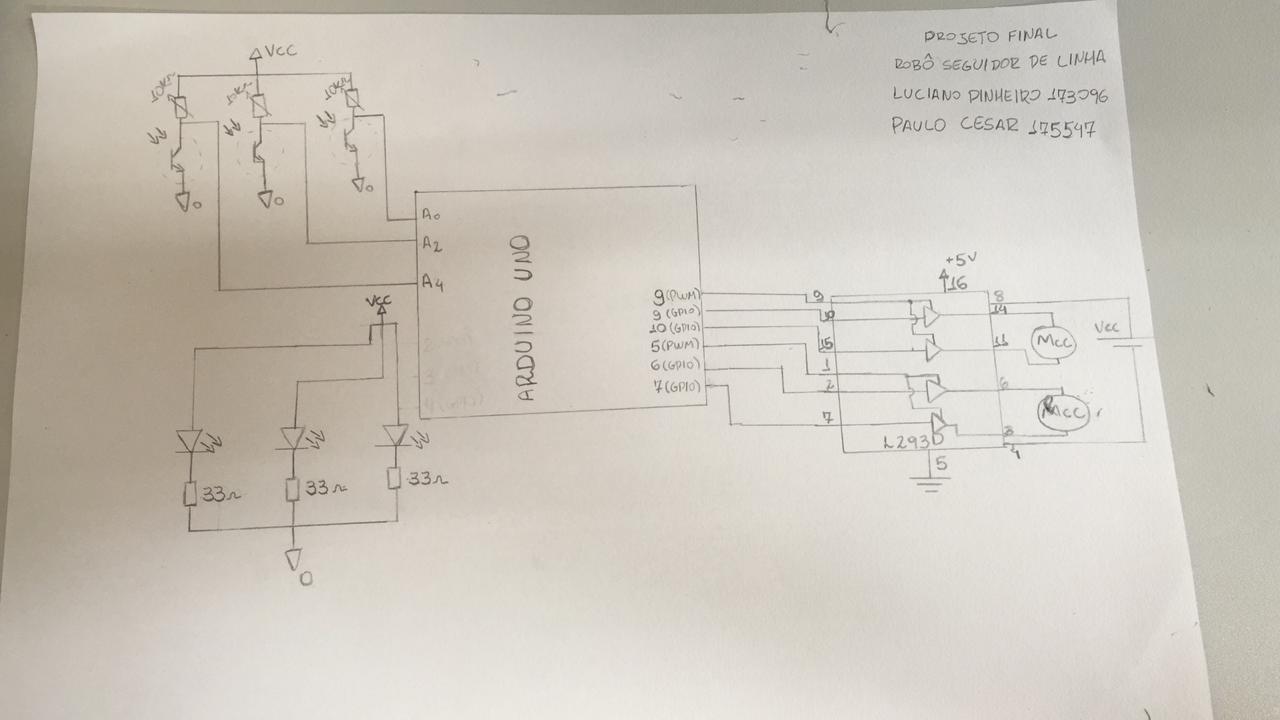 PROJETO FINAL
ROBÔ SEGUIDOR DE LINHA
LUCIANO PINHEIRO 173096
PAULO CESAR 175547
VCC
10KΩ
10KΩ
10KΩ
0
0
0
A0
A2
A4
ARDUINO UNO
9(PWM)
9(GPIO)
10(GPIO)
5(PWM)
6(GPIO)
7(GPIO)
VCC
33Ω
33Ω
33Ω
0
+5V
16
9
10
15
1
2
7
8
14
11
6
3
4
L293D
5
MCC
MCC
VCC